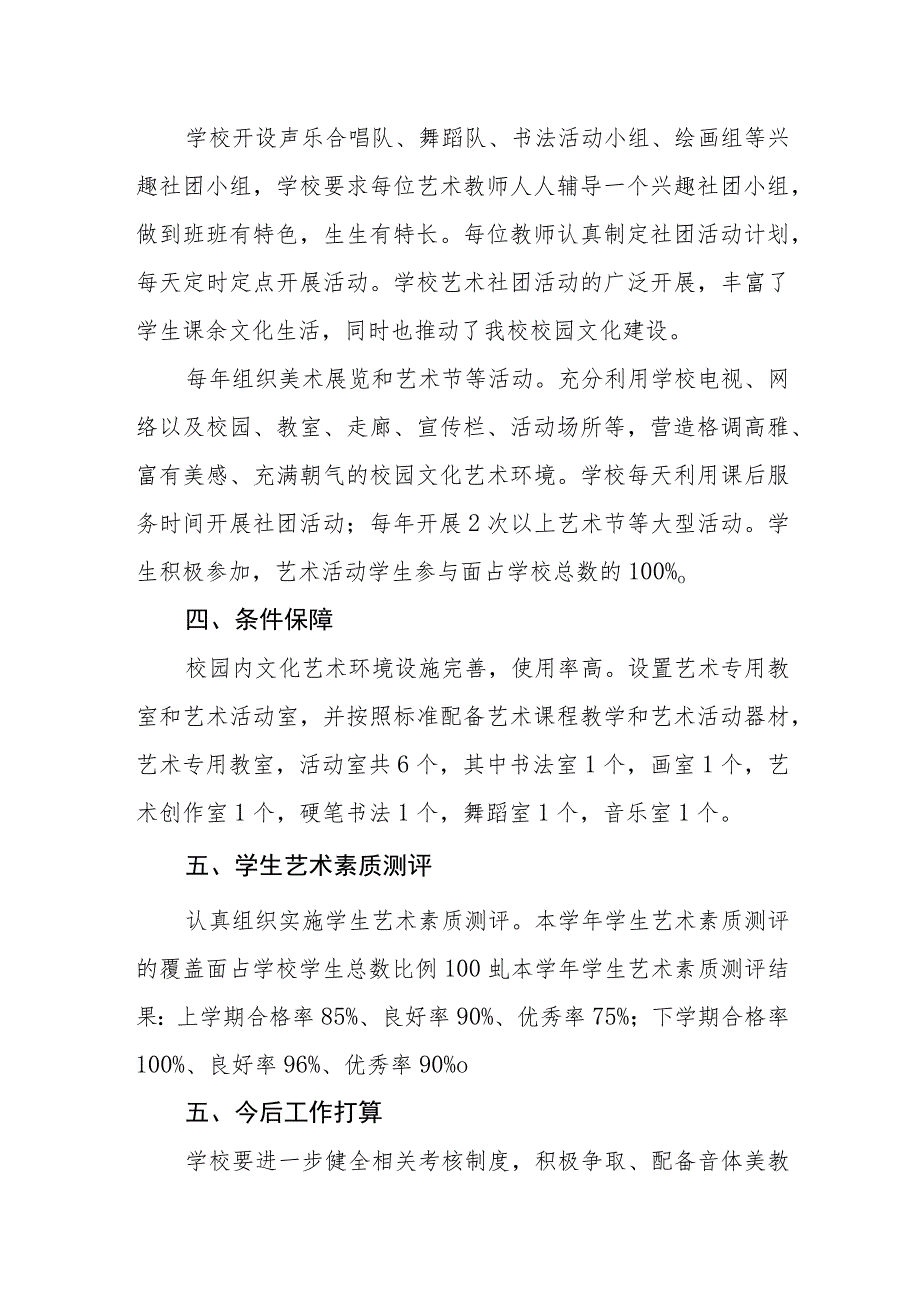 学校开设声乐合唱队、舞蹈队、书法活动小组、绘画组等兴
趣社团小组，学校要求每位艺术教师人人辅导一个兴趣社团小组，
做到班班有特色，生生有特长。每位教师认真制定社团活动计划，
每天定时定点开展活动。学校艺术社团活动的广泛开展，丰富了
学生课余文化生活，同时也推动了我校校园文化建设。
每年组织美术展览和艺术节等活动。充分利用学校电视、网
络以及校园、教室、走廊、宣传栏、活动场所等，营造格调高雅、
富有美感、充满朝气的校园文化艺术环境。学校每天利用课后服
务时间开展社团活动；每年开展2次以上艺术节等大型活动。学
生积极参加，艺术活动学生参与面占学校总数的100%。
四、条件保障
校园内文化艺术环境设施完善，使用率高。设置艺术专用教
室和艺术活动室，并按照标准配备艺术课程教学和艺术活动器材，
艺术专用教室，活动室共6个，其中书法室1个，画室1个，艺
术创作室1个，硬笔书法1个，舞蹈室1个，音乐室1个。
五、学生艺术素质测评
认真组织实施学生艺术素质测评。本学年学生艺术素质测评
的覆盖面占学校学生总数比例100虬本学年学生艺术素质测评结
果：上学期合格率85%、良好率90%、优秀率75%；下学期合格率
100%、良好率96%、优秀率90%o
五、今后工作打算
学校要进一步健全相关考核制度，积极争取、配备音体美教